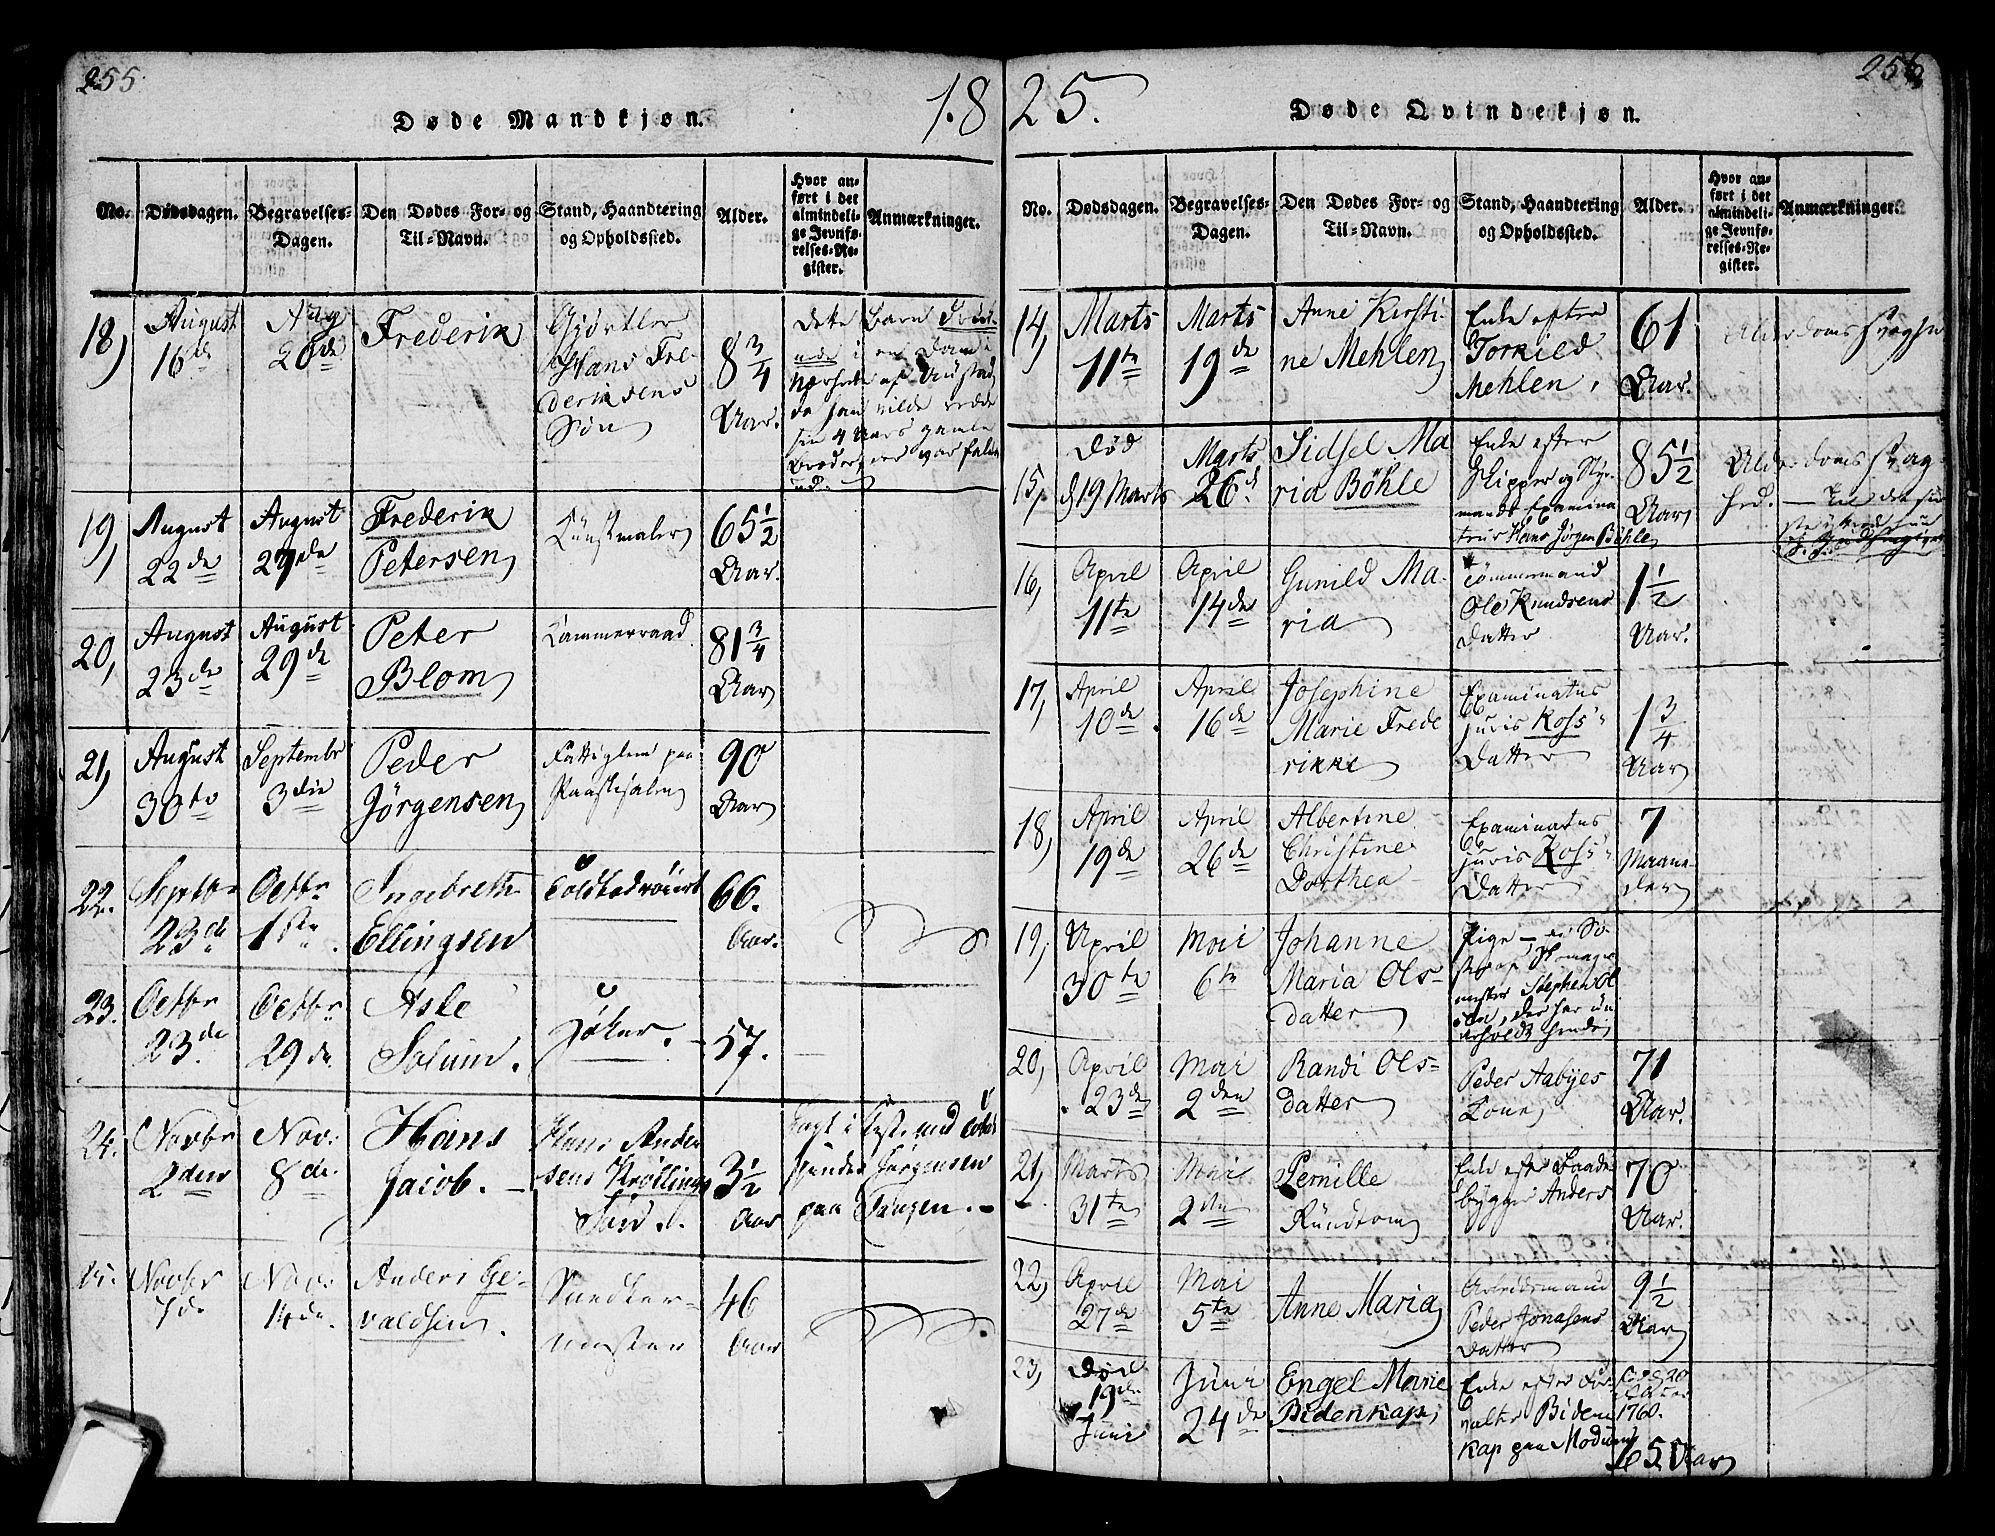 255
18
Døde Mandkjøn.
No.
Dødsdagen.
Begravelses-
Dagen.
Den Dødes For- og
Til-Navn.
Stand, Haandtering
og Opholdssted.
Alder.
Hvor an-
ført i det
almindeli-
ge Jevnfø-
relses-Re-
gister.
Anmærkninger.
18)
August
16de
Aug
20de
Frederik
Gjørtler
Hans Fre-
deriksens
Søn
8 3/4
Aar.
dette Barn
i en Dam i
Nærheden af
da han vilde redde
sin 4 Aars gamle
Broder, der var falden
ud.
19)
August
22de
August
27de
Frederik
Petersen
Kunstmaler
65 1/2
Aar.
20,
August
23de
August
29de
Peter
Blom
Kammerraad
81 3/4
Aar
21,
August
30te
Septembr
3die
Peder
Jörgensen
Fattiglem paa
90
Aar
22.
Septbr
23de
Octbr
1ste
Ingebreth
Ellingsen
66.
Aar.
23.
Octbr
23de
Octbr
29de.
Asle
Solum.
57.
24.
Novbr
2den
Nov:
8de.
Hans
Jacob.
Hans Ander
sens
Søn.
3 1/2
Aar
Jörgensen
paa Tangen.
Novbr
7de
Nov:
14de.
Anders
valdsen.
46
Aar
25.
256
Døde Qvindekjøn.
No.
Dødsdagen.
Begravelses-
Dagen.
Den Dødes For- og
Til-Navn.
Stand, Haandtering
og Opholdssted.
Alder.
Hvor an-
ført i det
almindeli-
ge Jevnfø-
relses-Re-
gister.
Anmærkninger.
14,
Marts
11te
Marts
19de
Anne Kirsti-
ne Mehlen
Enke efter
Torkild
Mehlen.
61
Aar.
Alderdoms
15,
død
d 19 Marts
Marts
26d
Sidsel Ma
ria Böhle
Enke efter
Skipper og Styr-
mands Examina
teur Hans Jørgen Böhle
85 1/2
Aar
Alderdoms svag-
hed.
16,
April
11te
April
14de
Gunild Ma-
ria
Tømmermand
Ole Knudsens
Datter
1 1/2
Aar.
17,
April
10de.
April
16de
Josephine
Marie Frede
rikke
Examinatus
juris Koss
Datter
1 3/4
Aar
18,
April
19de
April
26de
Albertine
Christine
Dorthea
Examinatus
juris Koss
Datter
7
Maane-
der
19,
April
30te
Mai
6te
Johanne
Maria Ols-
datter
Pige
20,
April
23de
Mai
2den
Randi Ols-
datter
Peder Aabyes
Kone
71
Aar.
21,
Marts
31te
Mai
2den
Pernille
Rundtom
Enke efter Baade
bygger Anders
70
Aar.
22,
April
27de
Mai
5te
Anne Maria
Arbeidsmand
Peder Jonasens
Datter
9 1/2
Aar
23,
død
19de
Juni
Juni
24de
Engel Marie
Bidenkap
Enke efter For-
valter Biden
kap paa Modum
1760.
65 Aar